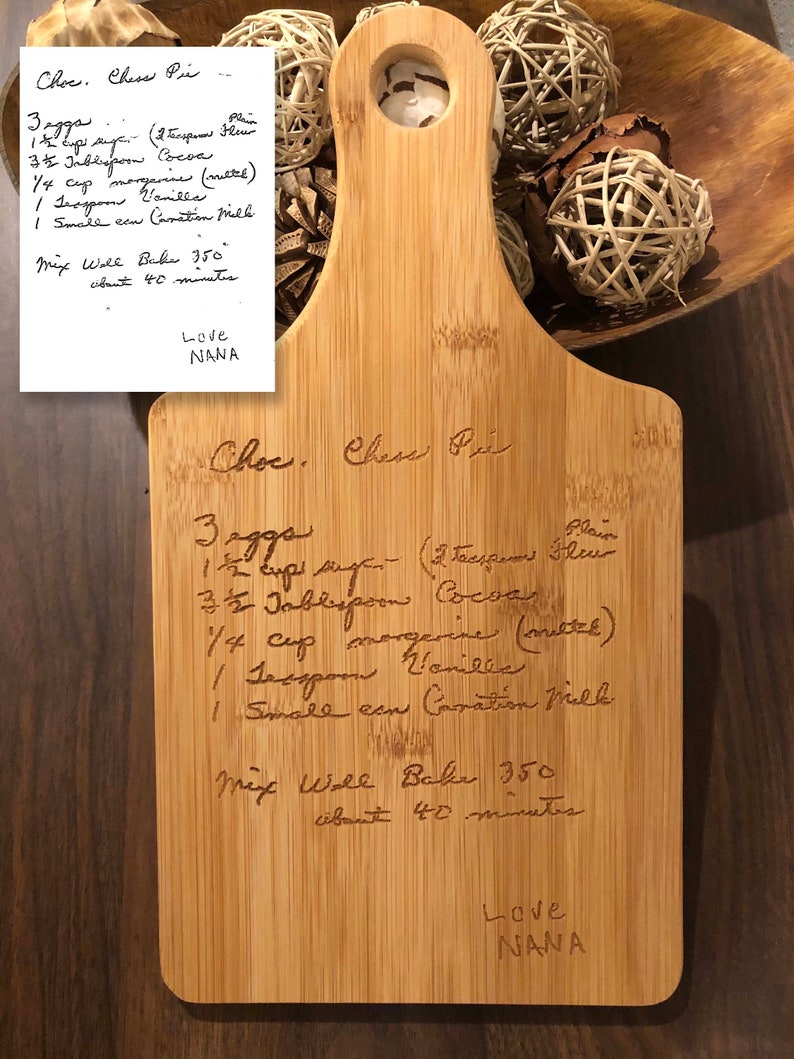 Choc. Chess Pie
3 eggs
1 ½ cup sugar (2 teaspoon Plain Flour
3 ½ Tablespoon Cocoa
1/4 cup margerine (melted)
1 Teaspoon Vanilla
1 Small can Carnation Milk
Mix Well Bake 350°
about 40 minutes
Love
NANA
Choc. Chess Pie
3 eggs
1 ½ cup sugar (2 teaspoon Plain Flour
3 ½ Tablespoon Cocoa
1/4 cup margerine (melted)
1 Teaspoon Vanilla
1 Small can Carnation Milk
Mix Well Bake 350
about 40 minutes
Love
NANA